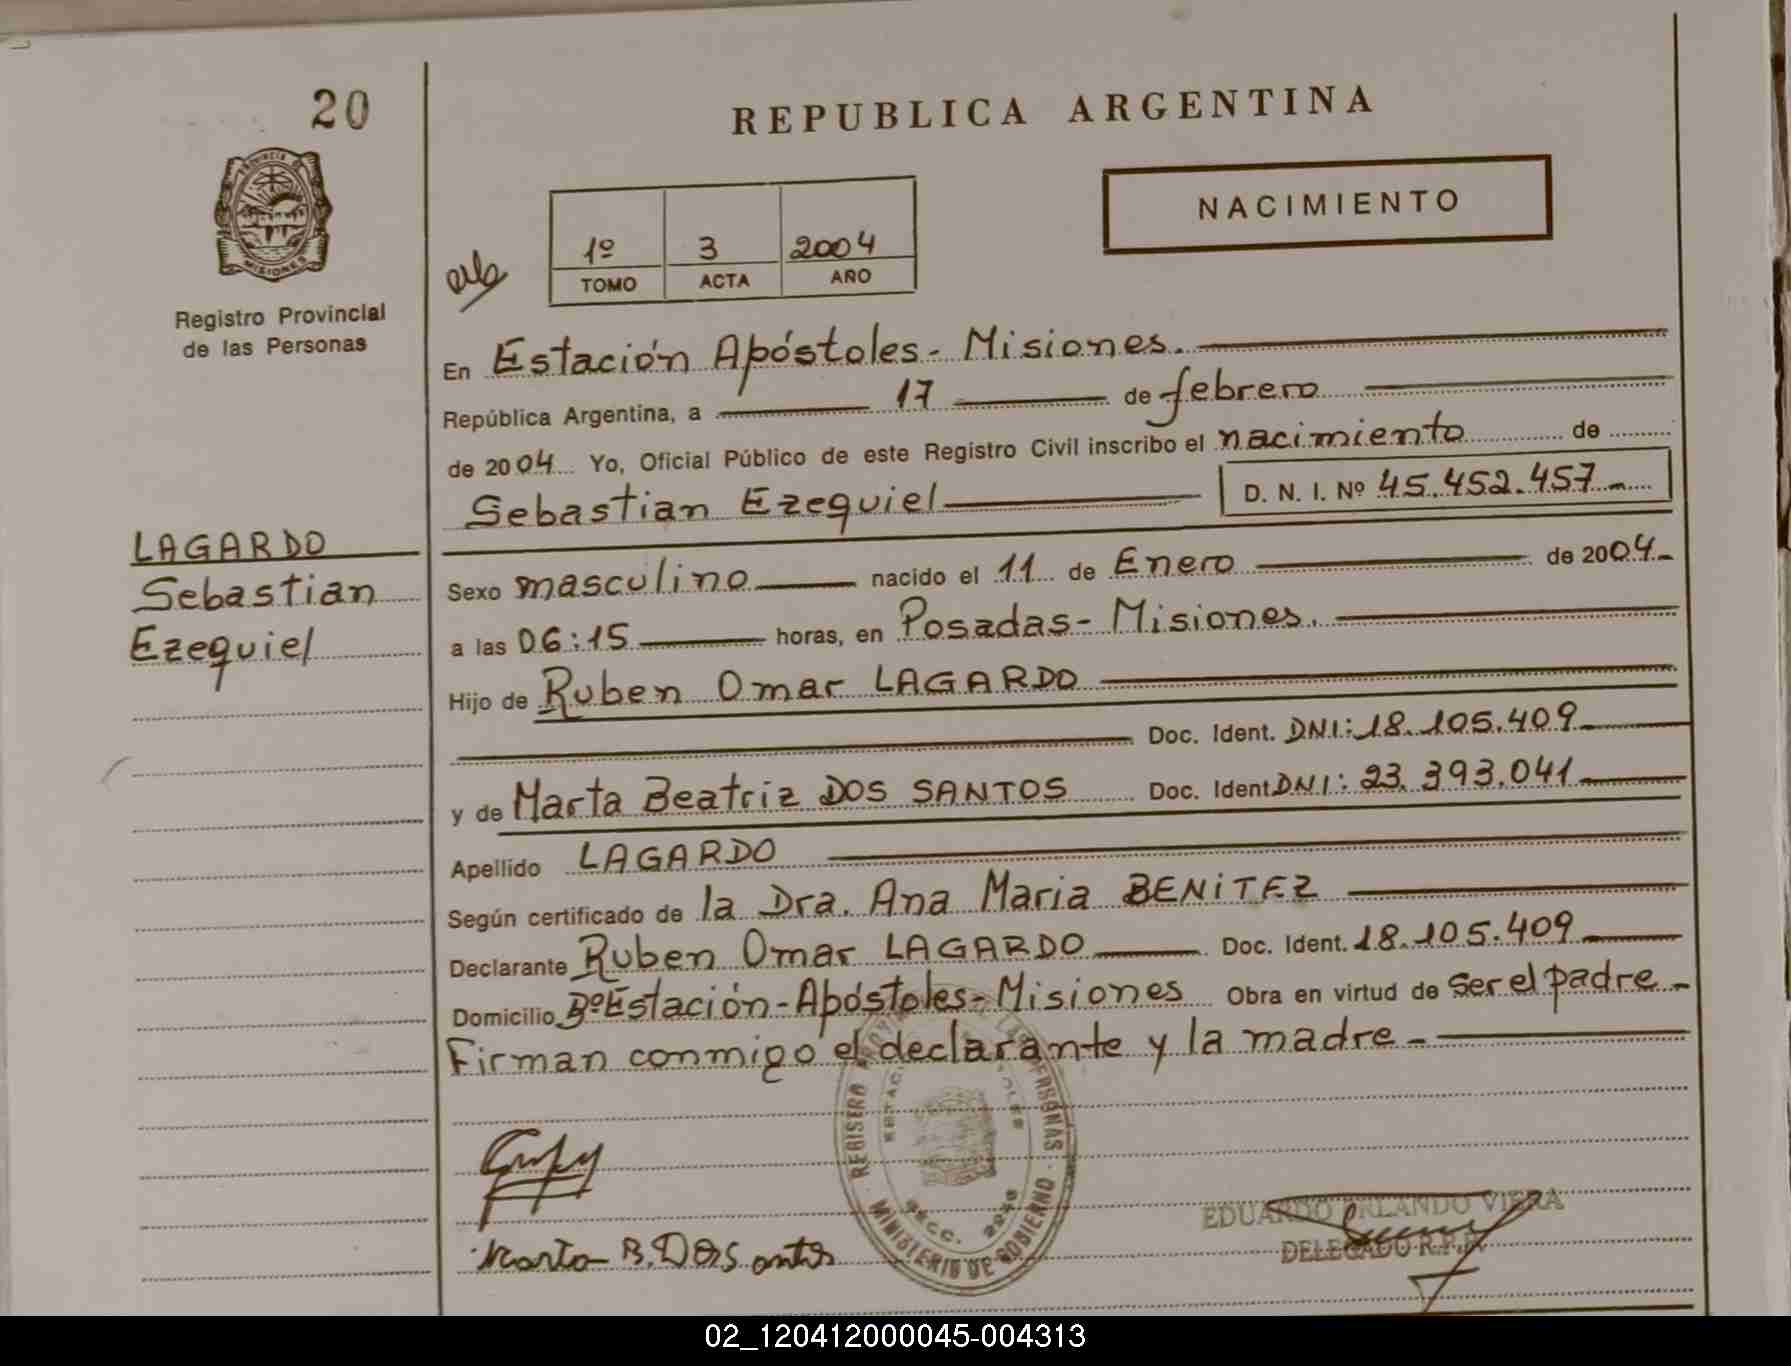 20
REPUBLICA ARGENTINA
PROVINCIA DE
MISIONES
NACIMIENTO
1º 3 2004
TOMO ACTA AÑO
Registro Provincial
de las Personas
En Estación Apóstoles - Misiones.
República Argentina, a 17 de febrero
de 2004 Yo, Oficial Público de este Registro Civil inscribo el nacimiento de
Sebastian Ezequiel D. N. I. Nº 45.452.457
LAGARDO
Sebastian
Ezequiel
Sexo masculino nacido el 11 de Enero de 2004
a las 06:15 horas, en Posadas - Misiones.
Hijo de Ruben Omar LAGARDO
Doc. Ident. DNI: 18.105.409
y de Marta Beatriz DOS SANTOS Doc. Ident DNI: 23.393.041
Apellido LAGARDO
Según certificado de la Dra. Ana Maria BENITEZ
Declarante Ruben Omar LAGARDO Doc. Ident. 18.105.409
Domicilio Bº Estación - Apóstoles - Misiones Obra en virtud de ser el padre
Firman conmigo el declarante y la madre
Marta B. Dos Santos
MINISTERIO DE GOBIERNO
SECC.
EDUARDO ORLANDO VIERA
DELEGADO R.P.P.
02_120412000045-004313